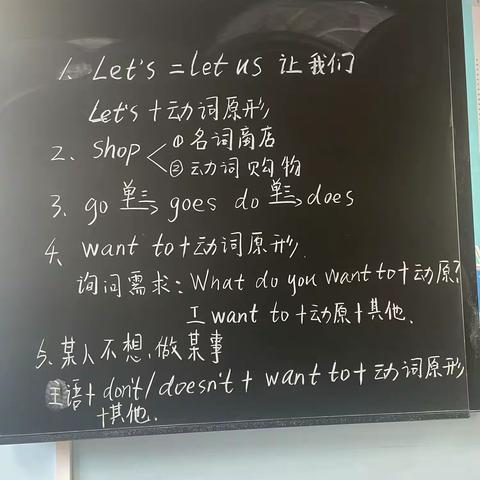 1. Let's = let us 让我们
Let's + 动词原形
2. shop ① 名词 商店
② 动词 购物
3. go 单三→ goes do 单三→ does
4、want to + 动词原形.
询问需求: What do you want to + 动原?
I want to + 动原 + 其他.
5. 某人不想做某事
主语 + don't / doesn't + want to + 动词原形
+ 其他.